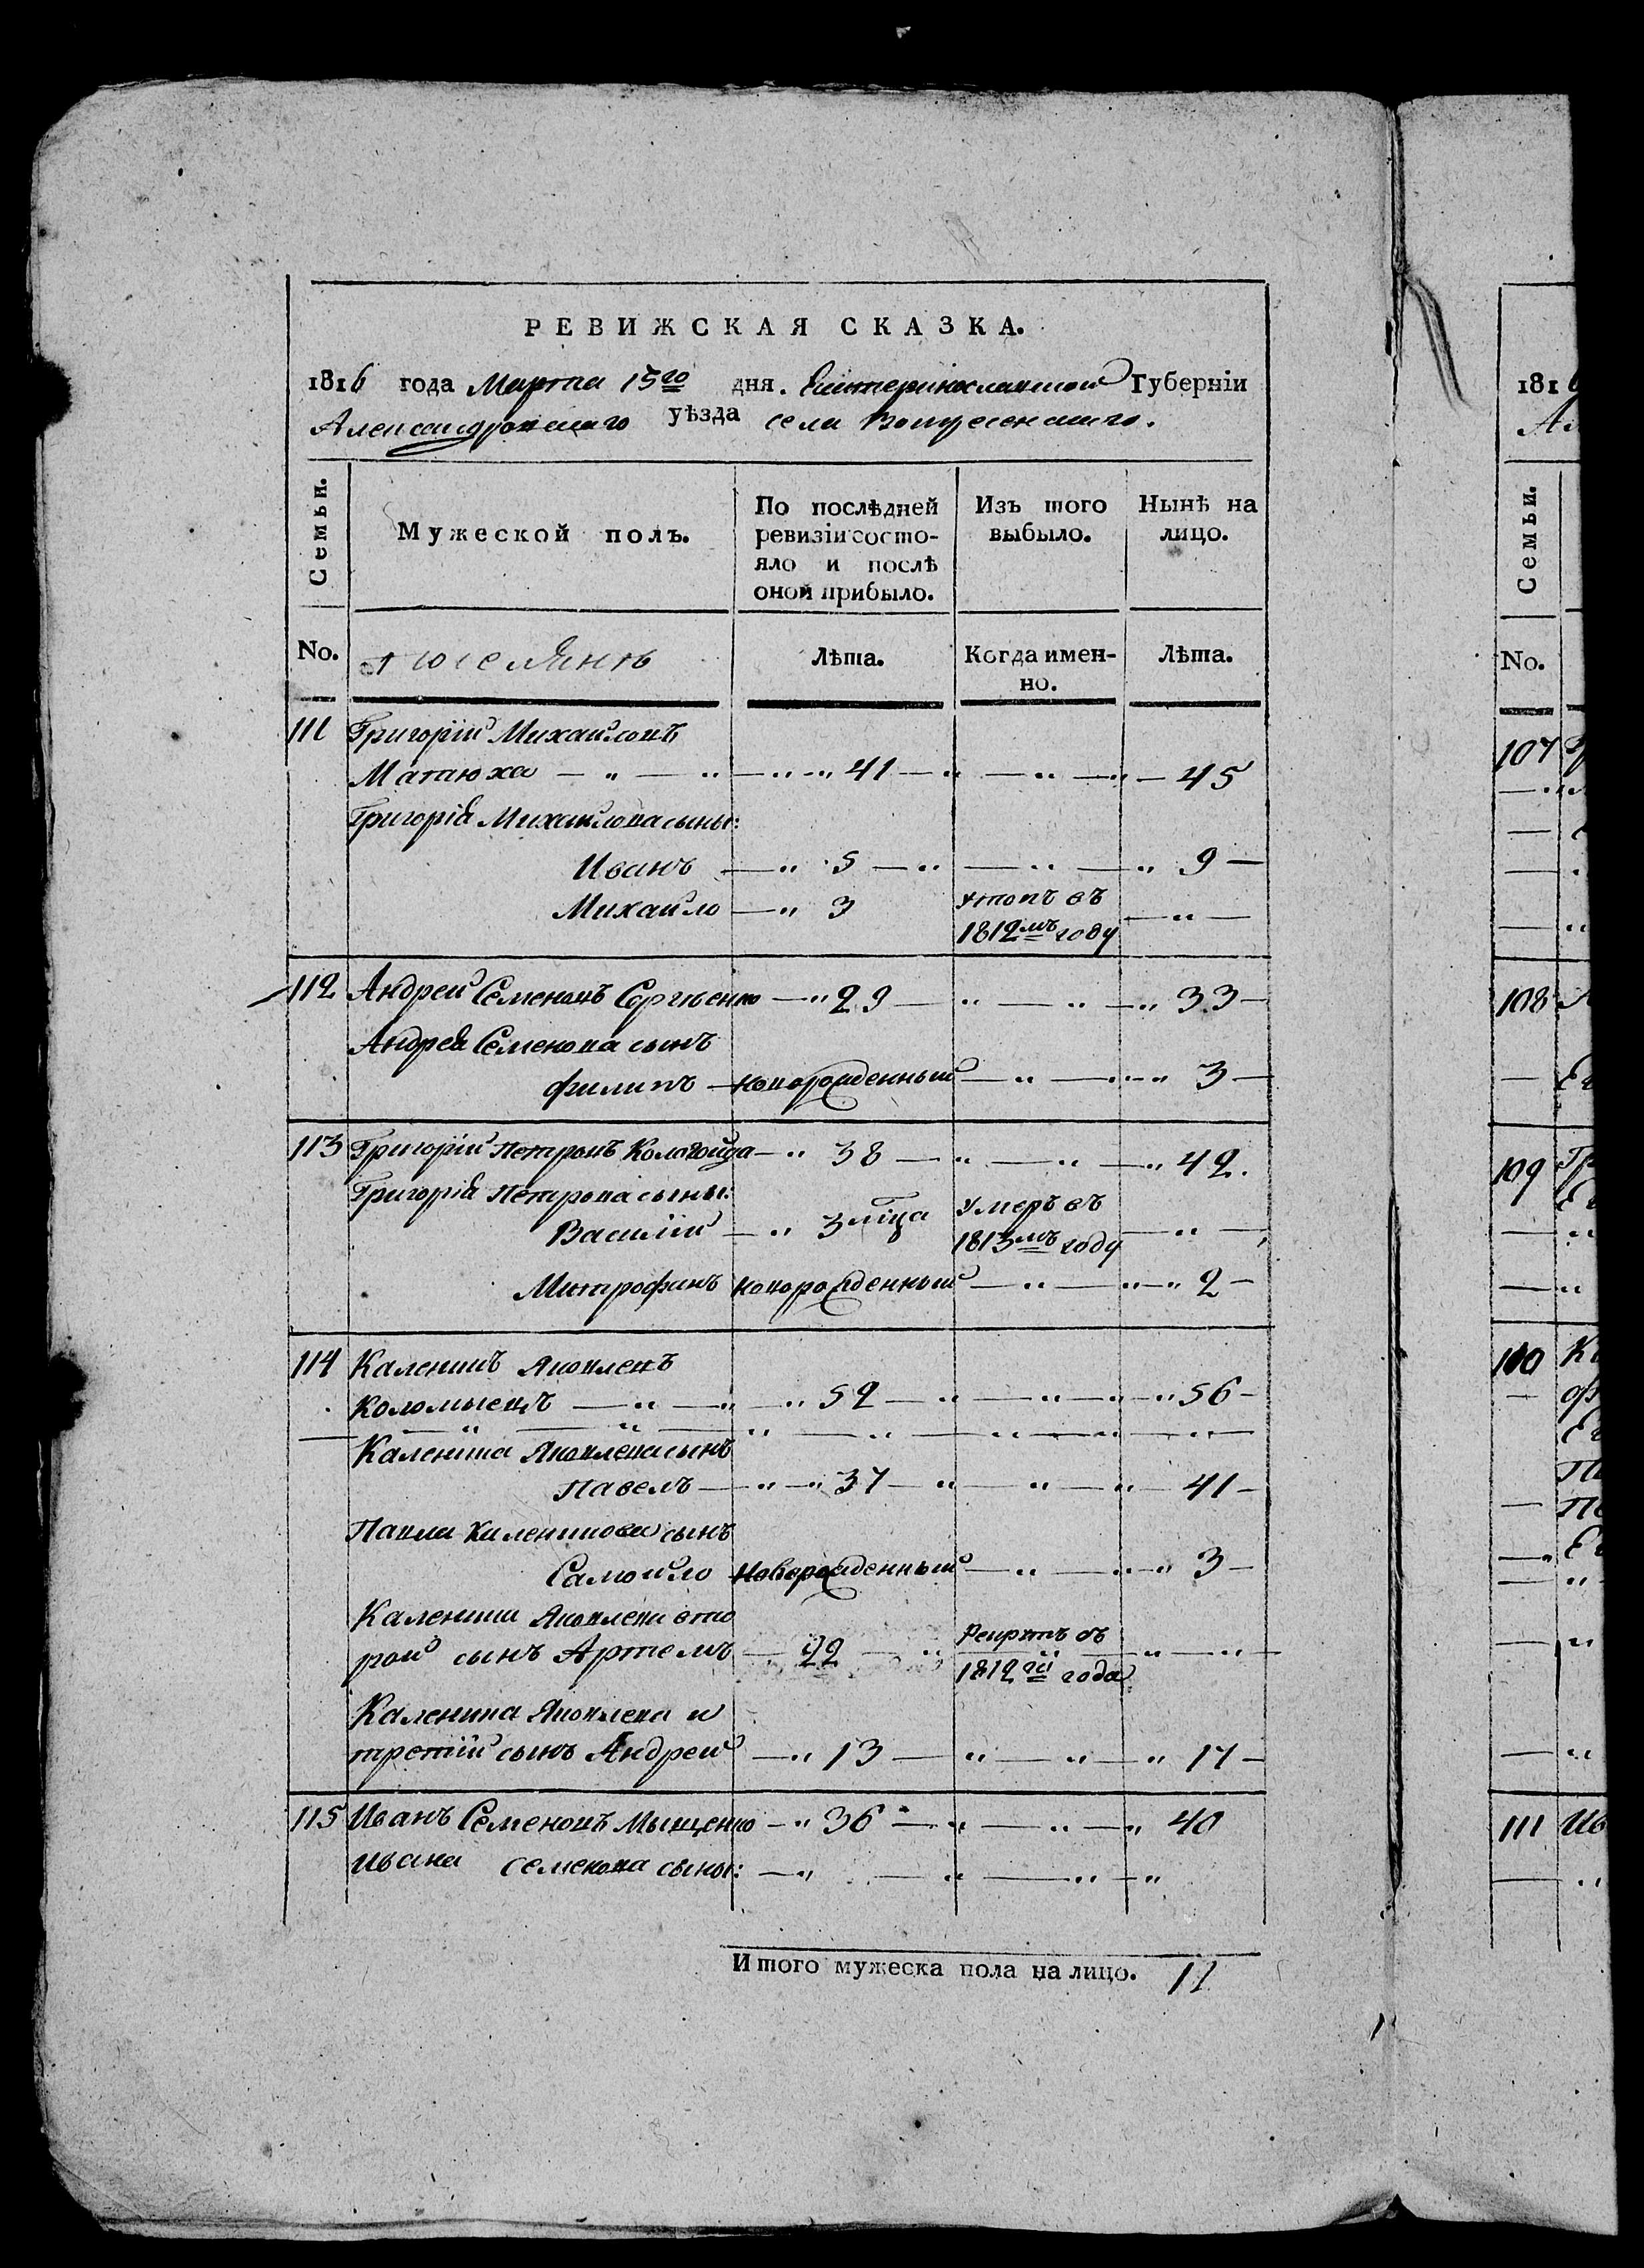 РЕВИЖСКАЯ СКАЗКА.
1816 года Марта 15го дня. Екатеринославской Губерніи
Александровскаго уѣзда села Вознесенскаго.
Семьи.
Мужеской полъ.
По послѣдней ревизіи состо-
яло и послѣ
оной прибыло.
Изъ того
выбыло.
Нынѣ на
лицо.
No.
Поселянъ
Лѣта.
Когда имен-
но.
Лѣта.
111 Григорій Михайловъ
Матюха — 41 — 45
Григорія Михайлова сыны:
Иванъ — 5 — 9
Михайло — 3 утопъ въ
1812мъ году
112 Андрей Семеновъ Сергѣенко — 29 — 33
Андрея Семенова сынъ
Филипъ — новорожденный — 3
113 Григорій Петровъ Кологойда — 38 — 42.
Григорія Петрова сыны:
Василій — 3 мѣца умеръ въ
1813мъ году
Митрофанъ новорожденный — 2
114 Каленикъ Яковлевъ
Коломыецъ — 52 — 56
Каленика Яковлева сынъ
Павелъ — 37 — 41
Павла Каленикова сынъ
Самойло новорожденный — 3
Каленика Яковлева вто
рой сынъ Артемъ — 22 Рекрутъ съ
1812го года
Каленика Яковлева и
третій сынъ Андрей — 13 — 17
115 Иванъ Семеновъ Мыщенко — 36 — 40
Ивана Семенова сыны:
Итого мужеска пола на лицо. 11
181
Семьи.
No.
107
108
109
110
111 Ив